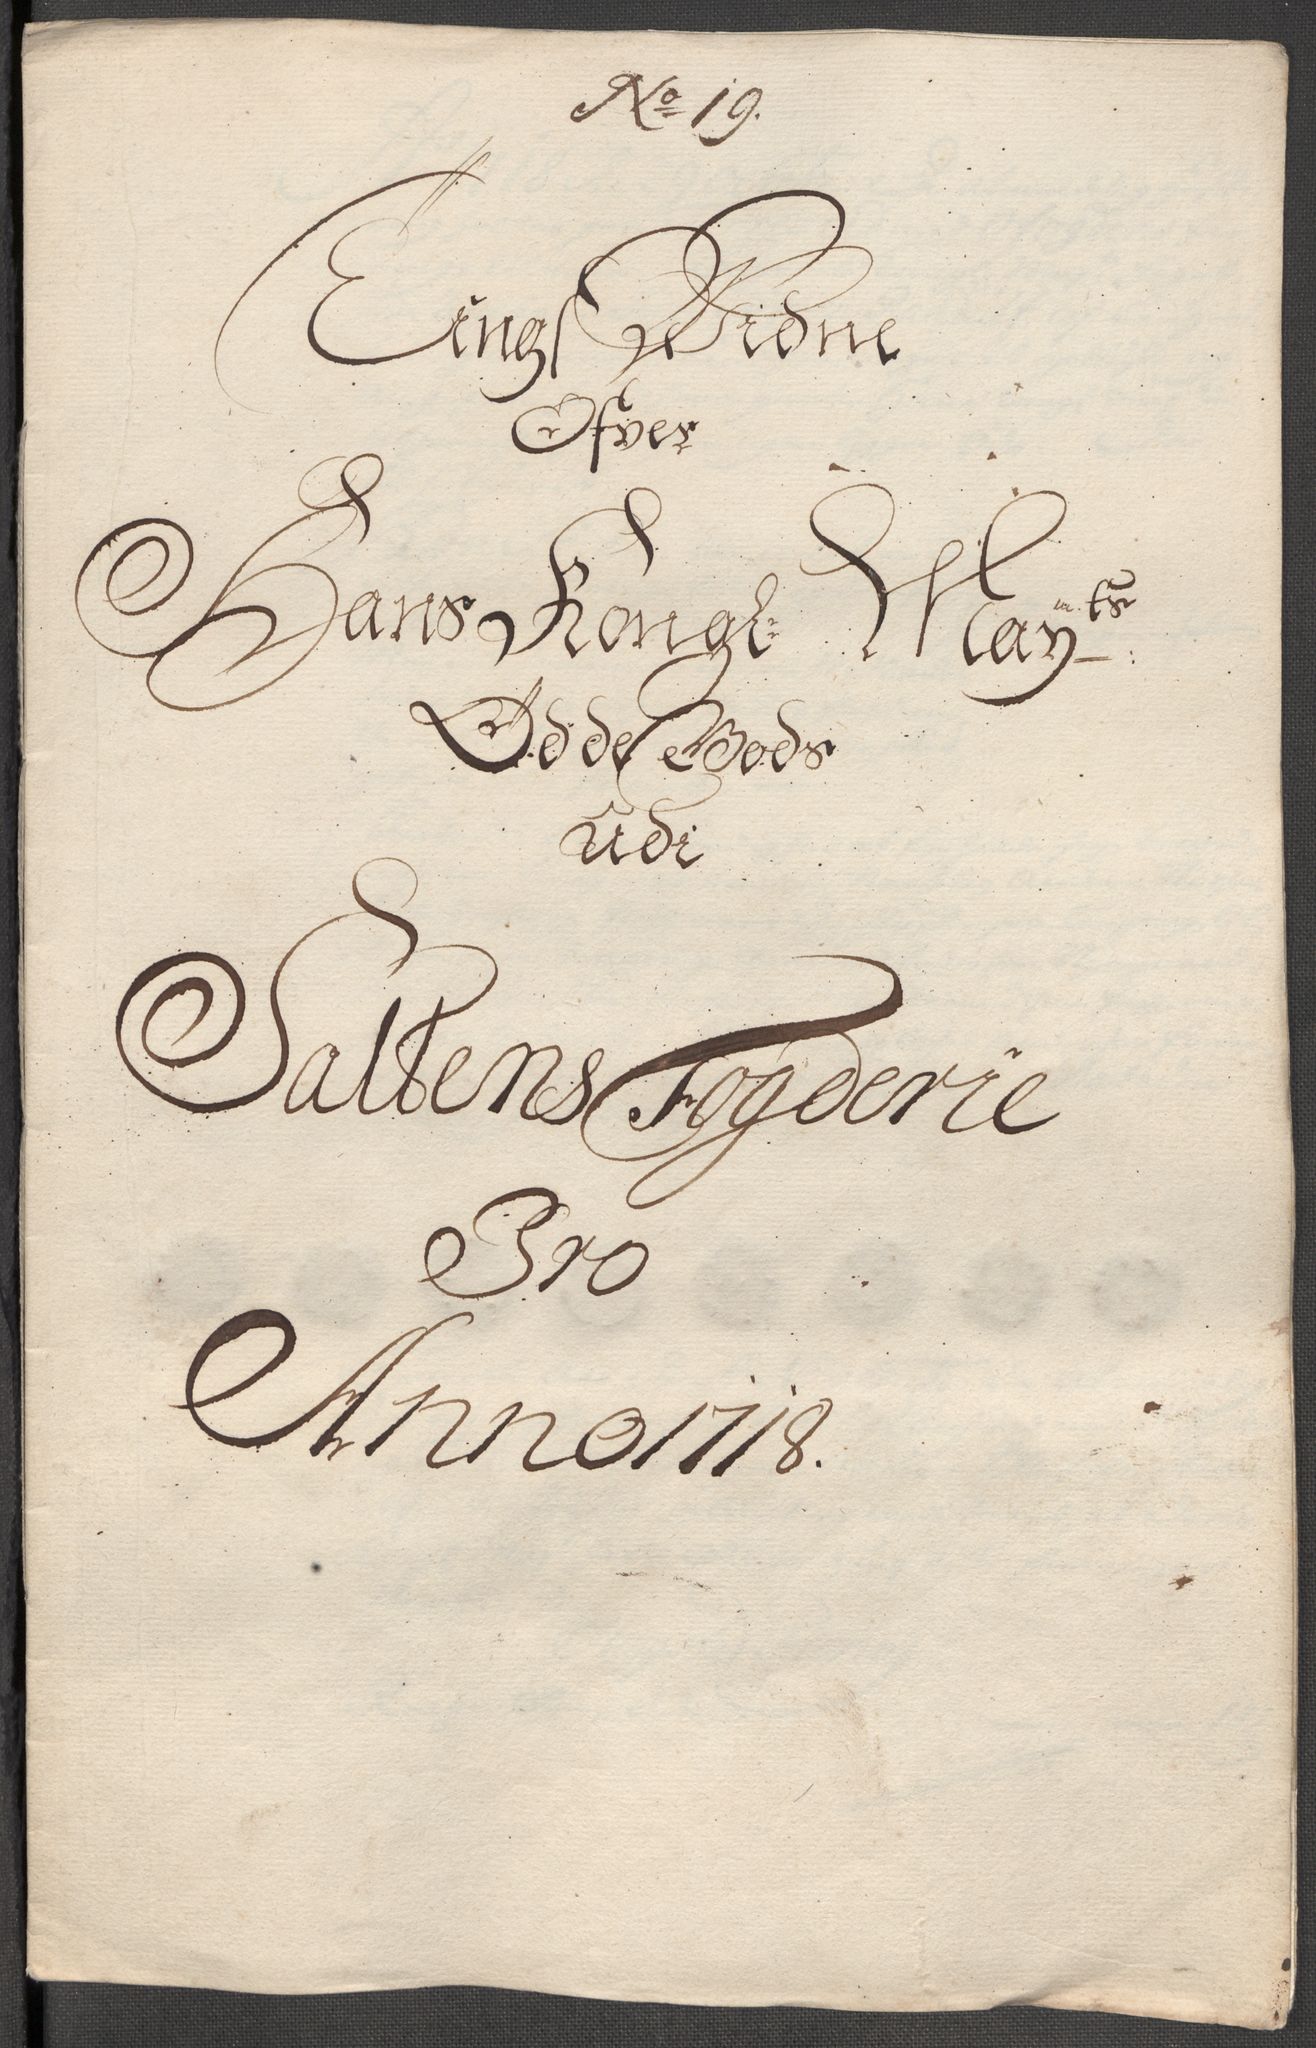 No 19.
Tings Widne
Ofver
Hans Kongl: Mayts:
Ødde Gods
udi
Saltens Fogderie
Pro
Anno 1718.